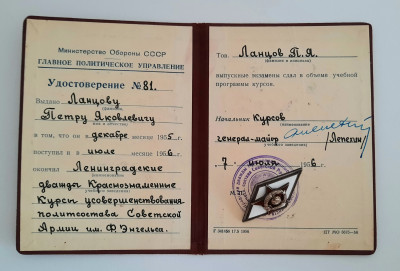 Министерство Обороны СССР
ГЛАВНОЕ ПОЛИТИЧЕСКОЕ УПРАВЛЕНИЕ
Удостоверение № 81.
Выдано Ланцову
Петру Яковлевичу
в том, что он в декабре месяце 1955 г.
поступил и в июле месяце 1956 г.
окончил Ленинградские
дважды Краснознаменные
Курсы усовершенствования
политсостава Советской
Армии им. Ф. Энгельса.
Тов. Ланцов П.Я.
(фамилия и инициалы)
выпускные экзамены сдал в объеме учебной
программы курсов.
Начальник Курсов
генерал-майор /Лепегин/
7 июля 1956 г.